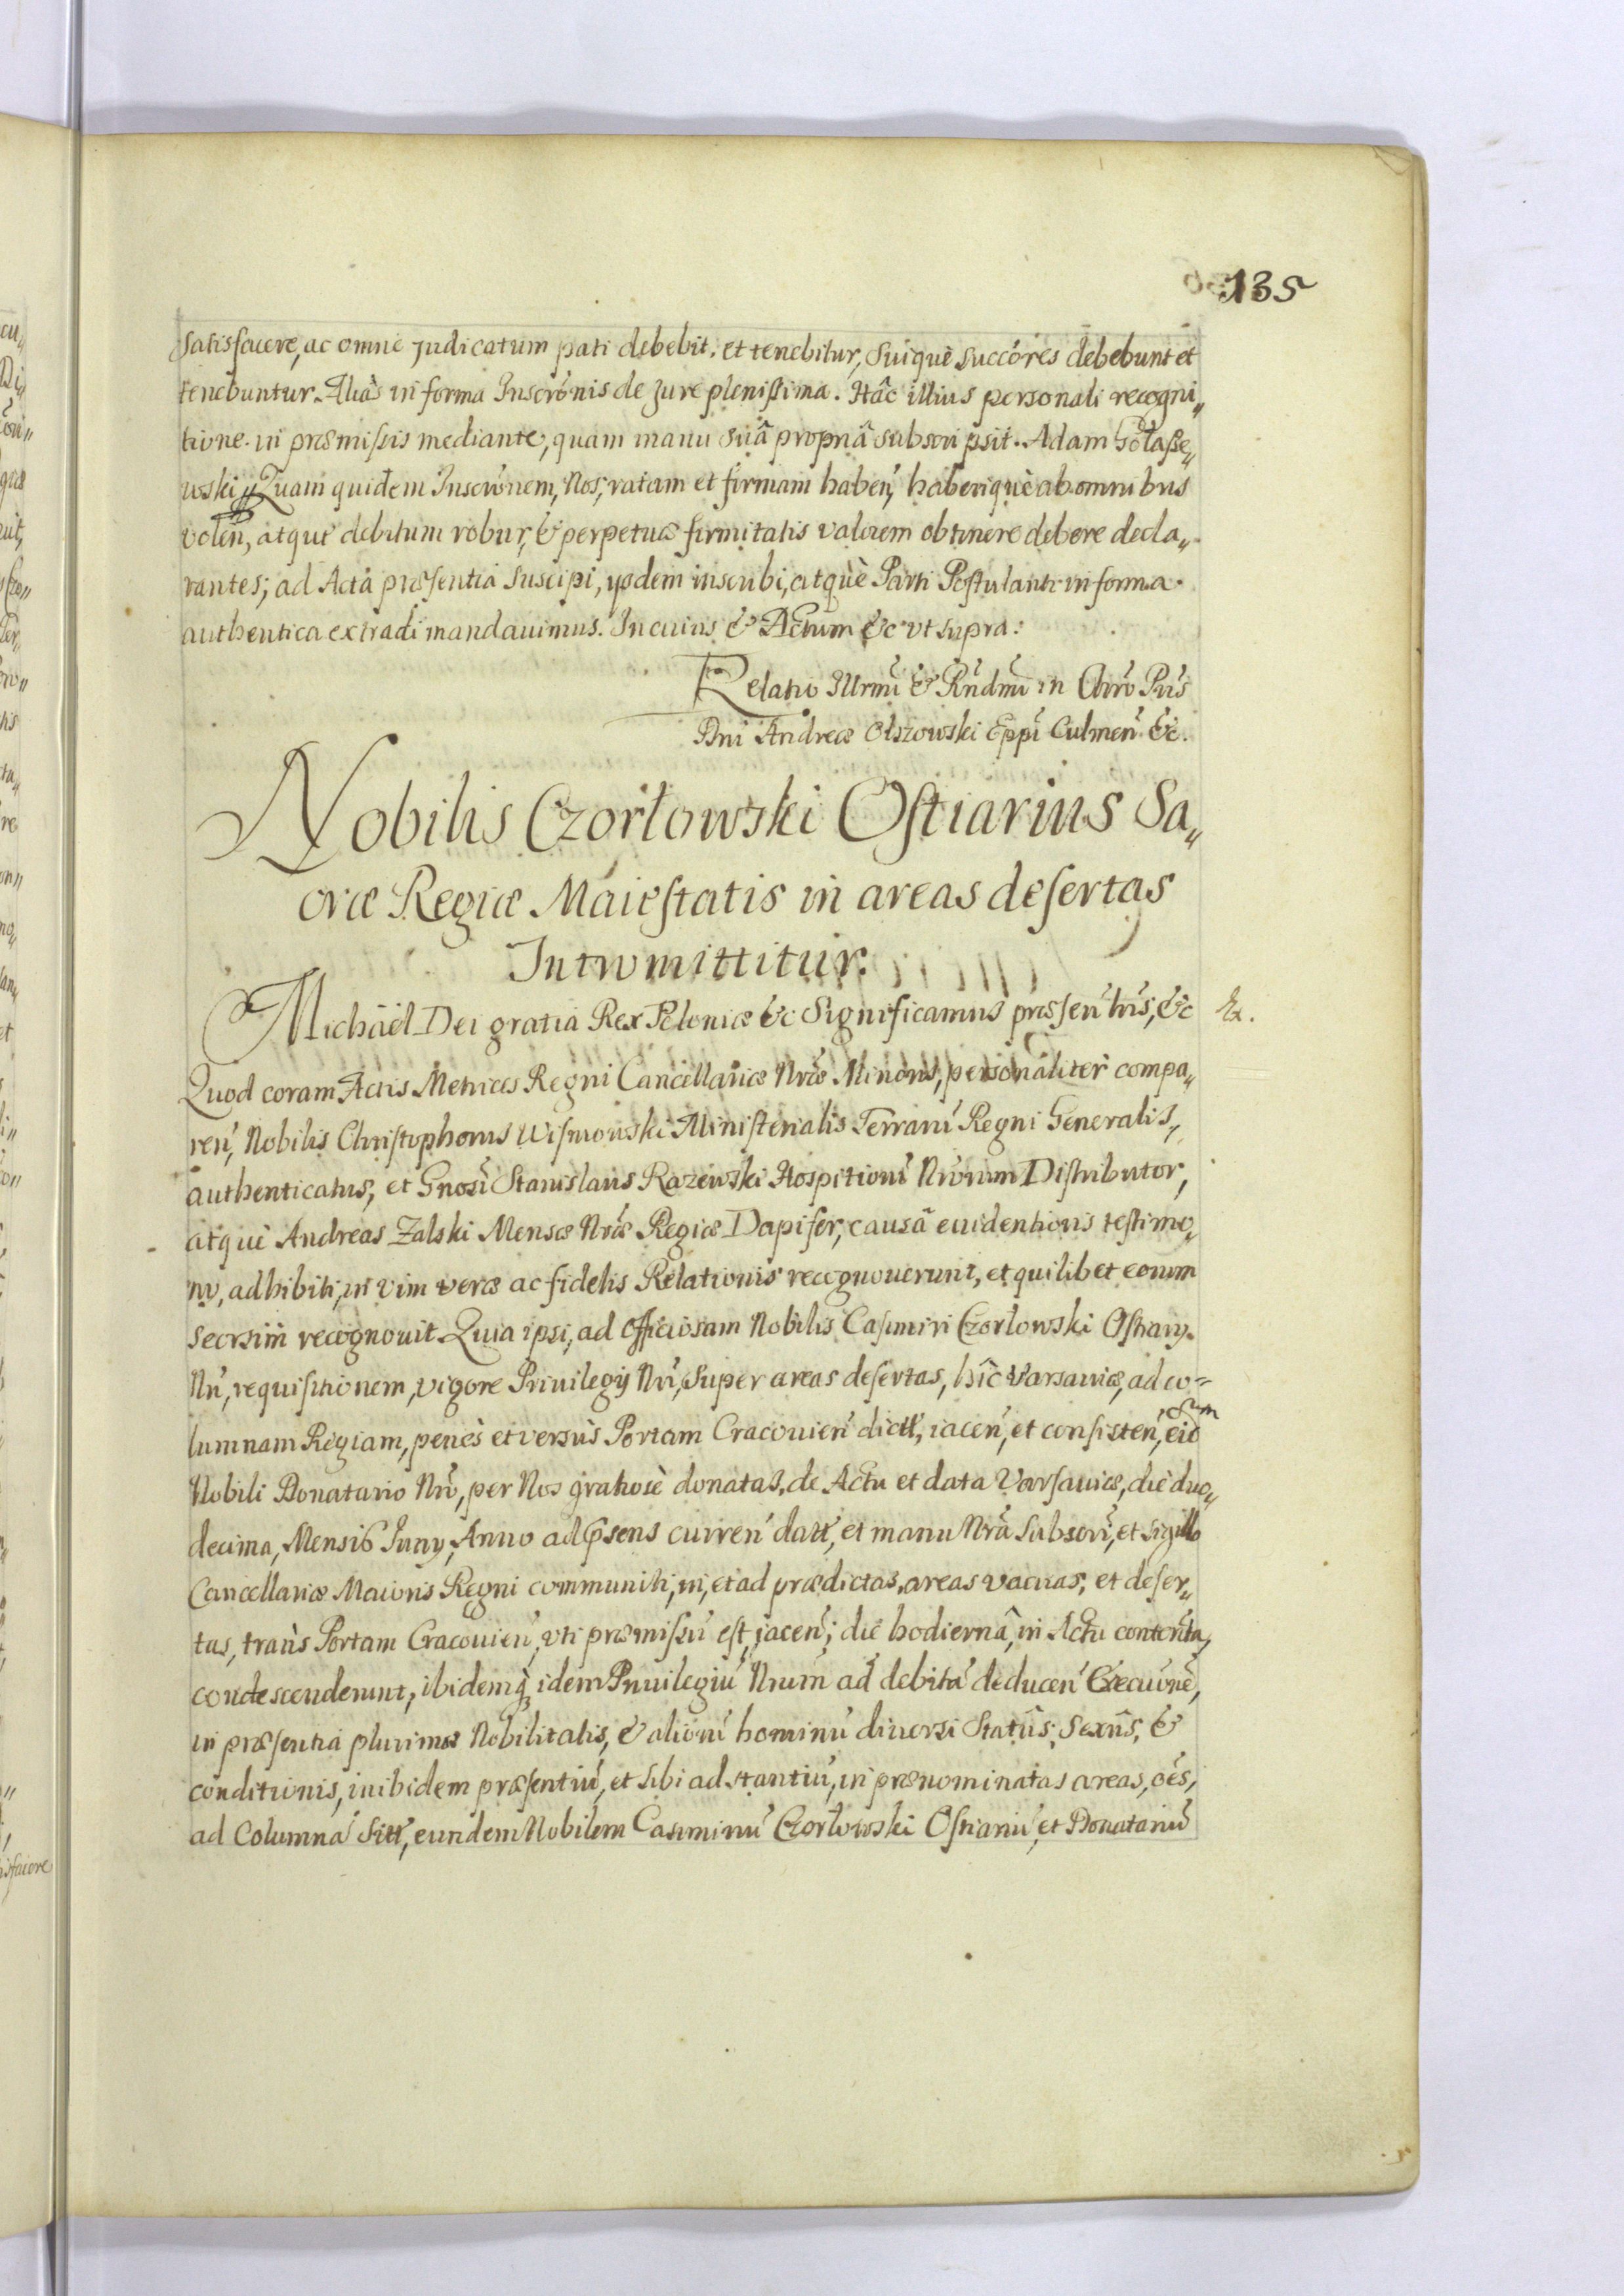 135
satisfacere, ac omne judicatum pati debebit, et tenebitur, Suiquè Succo͠res debebunt et
tenebuntur. Aliàs in forma Inscro͠nis de jure plenissima. Hâc illius personali recogni„
tione in præmissis mediante, quam manu suâ propriâ subscripsit. Adam Gołasze„
wski„ Quam quidem Inscro͠nem, Nos, ratam et firmam haben͠, haberiquè ab omnibus
volen͠, atquè debitum robur, & perpetuæ firmitatis valorem obtinere debere decla„
rantes; ad Acta præsentia suscipi, ijsdem inscribi, atquè Parti Postulanti in forma
authentica extradi mandauimus. In cuius & Actum &c vt supra:
Relatio Illrmi͠ & Rn͠dmi͠ in Chro͠ Pris͠
Dn͠i Andreæ Olszowski Epp͠i Culmen͠. &c.
Nobilis Czortowski Ostiarius Sa„
cræ Regiæ Maiestatis in areas desertas
Intromittitur.
Michaël Dei gratia Rex Poloniæ &c Significamus præsentib͠s, &c
&.
Quod coram Actis Metrices Regni Cancellariæ Nr͠æ Minoris, personaliter compa„
ren͠, Nobilis Christophorus Wisniowski Ministerialis Terraru͠ Regni Generalis,
authenticatus, et Gnosi͠ Stanislaus Razewski Hospitioru͠ Nr͠orum Distributor,
atquè Andreas Zalski Mensæ Nr͠æ Regiæ Dapifer, causâ euidentioris testimo„
nij, adhibiti, in vim veræ ac fidelis Relationis recognouerunt, et quilibet eorum
seorsim recognouit. Quia ipsi, ad officiosam Nobilis Casimiri Czortowski Ostiarij
Nri͠, requisitionem, vigore Priuilegij Nri͠, super areas desertas, hîc Varsauiæ, ad co=
lumnam Regiam, penès et versùs Portam Cracouien͠ dictt͠, iacen͠, et consisten͠, eid
Nobili Donatario Nro͠, per Nos gratiosè donatas, de Actu et data Varsauiæ, die duo„
decima, Mensis Junij, Anno ad p͠sens curren͠ datt͠, et manu Nr͠a subscri͠, et sigillo
Cancellariæ Maioris Regni communiti, in, et ad prædictas, areas vacuas, et deser„
tas, trans Portam Cracouien͠, vti præmissu͠ est, jacen͠; die hodiernâ, in Actu contenta,
condescenderunt, ibidemq́; idem Priuilegiu͠ Nrum͠ ad debita͠ deducen͠ Execuo͠ne͠,
in præsentia plurimæ Nobilitatis, & alioru͠ hominu͠ diuersi Statûs, Sexûs, &
conditionis, inibidem præsentiu͠, et sibi adstantiu͠, in prænominatas areas, oe͠s,
ad Columna͠ sitt͠, eundem Nobilem Casimiru͠ Czortowski Ostiariu͠ et Donatariu͠